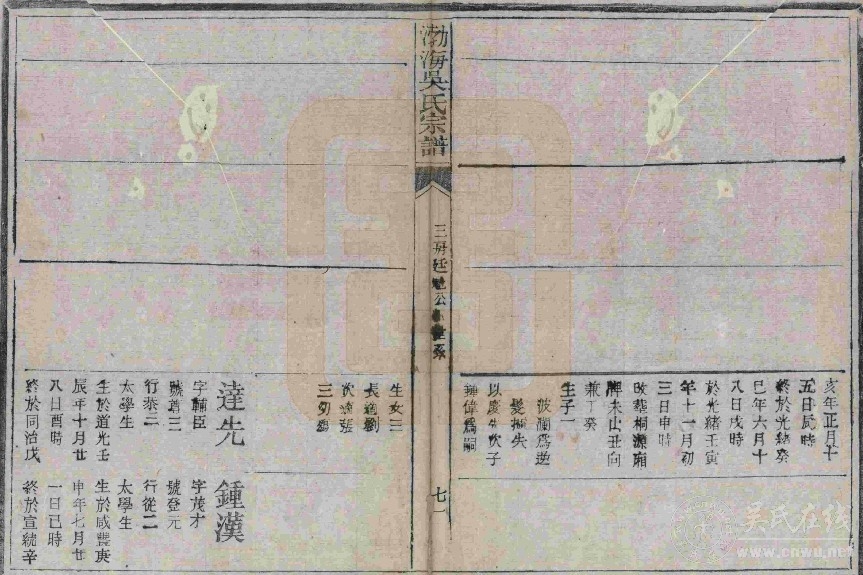 亥年正月十
五日辰時
終於光緒癸
巳年六月十
八日戌時
於光緒壬寅
年十一月初
三日申時
改葬桐
牌未山丑向
兼丁癸
生子一
波瀾爲逆
髪擄失
以慶先次子
鍾偉爲嗣
渤海吳氏宗譜
三房廷公
七一
生女三
長適劉
次適張
三幼殤
達先
字輔臣
號蕭三
行恭二
太學生
生於道光壬
辰年十月廿
八日酉時
終於同治戊
鍾漢
字茂才
號登元
行從二
太學生
生於咸豐庚
申年七月廿
一日巳時
終於宣統辛
吴氏在线
www.cnwu.net